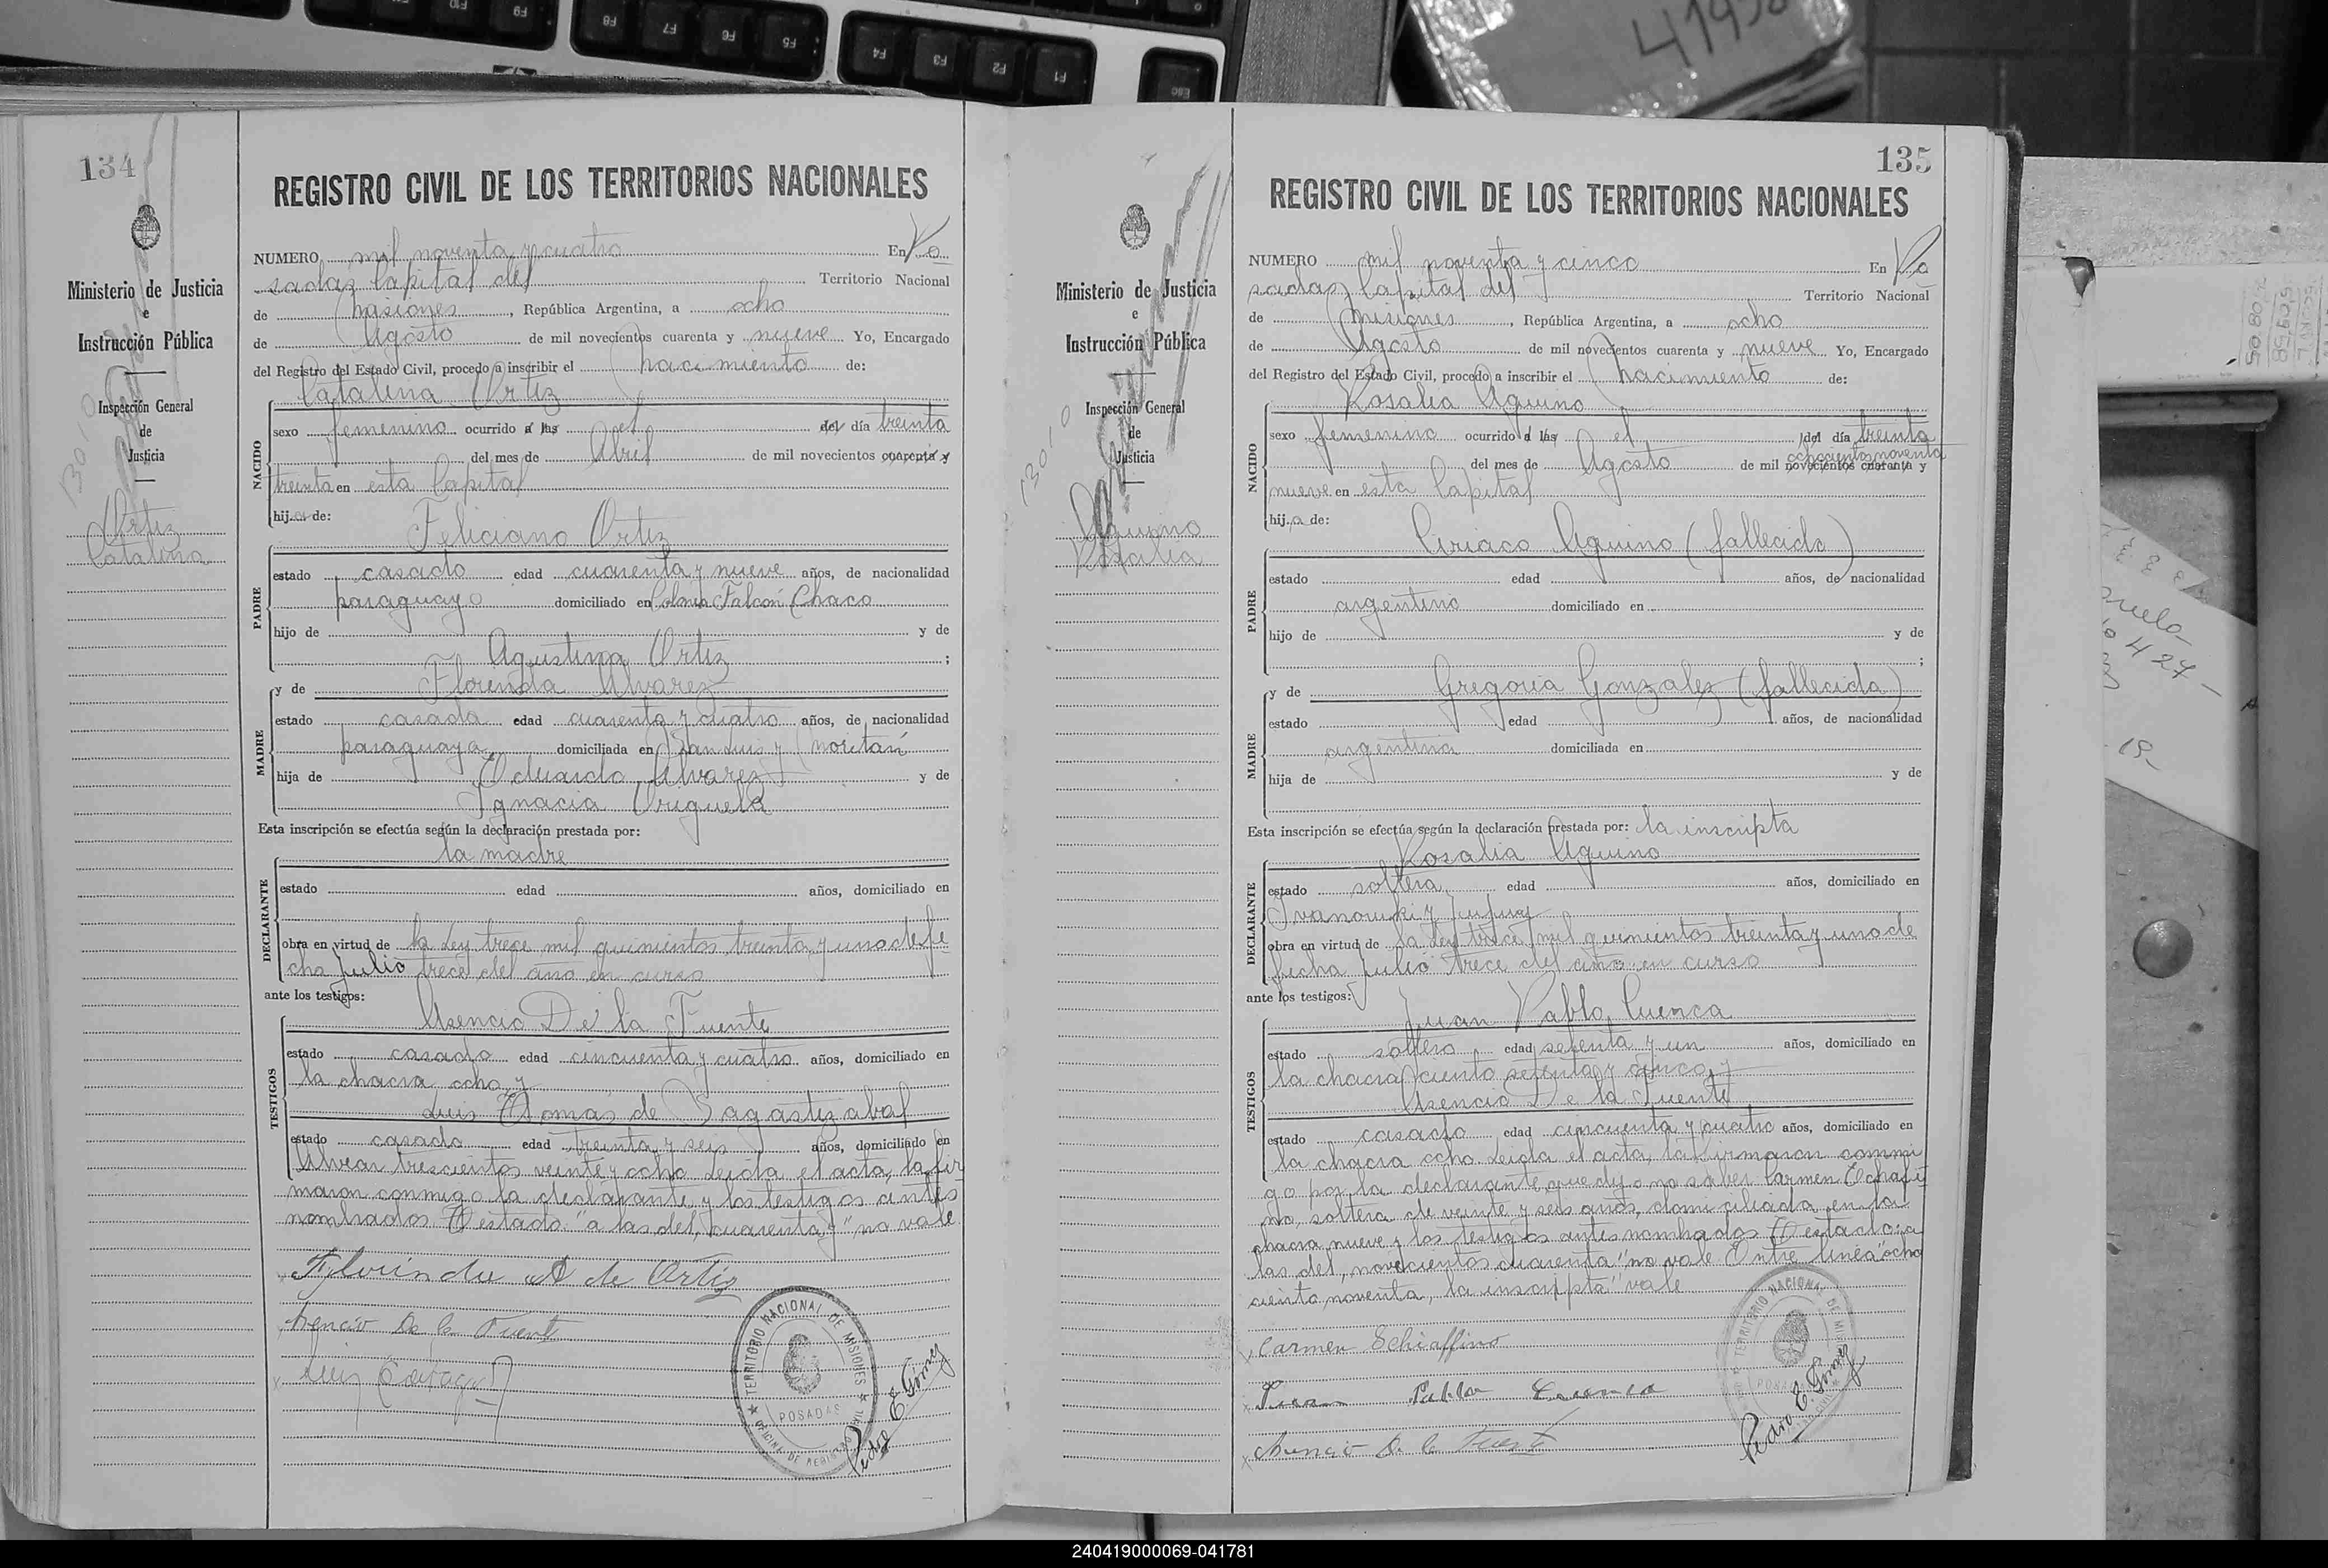 134
Ministerio de Justicia
e
Instrucción Pública
Inspección General
de
Justicia
13010
Ortiz
Catalina
REGISTRO CIVIL DE LOS TERRITORIOS NACIONALES
NUMERO mil noventa y cuatro En Po
sadas Capital del Territorio Nacional
de Misiones, República Argentina, a ocho
de Agosto de mil novecientos cuarenta y nueve Yo, Encargado
del Registro del Estado Civil, procedo a inscribir el nacimiento de:
Catalina Ortiz
NACIDO
sexo femenino ocurrido a las el del día treinta
del mes de Abril de mil novecientos cuarenta y
treinta en esta Capital
hija de:
Feliciano Ortiz
PADRE
estado casado edad cuarenta y nueve años, de nacionalidad
paraguayo domiciliado en Colonia Falcón Chaco
hijo de y de
Agustina Ortiz ;
y de Florinda Alvarez
MADRE
estado casada edad cuarenta y cuatro años, de nacionalidad
paraguaya domiciliada en San Luis y
hija de Eduardo Alvarez y de
Ignacia
Esta inscripción se efectúa según la declaración prestada por:
la madre
DECLARANTE
estado edad años, domiciliado en
obra en virtud de la Ley trece mil quinientos treinta y uno de fe
cha Julio trece del año en curso
ante los testigos:
Asencio De la Fuente
TESTIGOS
estado casado edad cincuenta y cuatro años, domiciliado en
la chacra ocho y
Luis Tomás de Sagastizabal
estado casado edad treinta y seis años, domiciliado en
Alvear trescientos veinte y ocho Leída el acta, la fir
maron conmigo la declarante y los testigos antes
nombrados Testado "a las del, cuarenta y" no vale
Florinda A de Ortiz
Asencio De la Fuente
Luis
TERRITORIO NACIONAL DE MISIONES
POSADAS
OFICINA DE REGISTRO CIVIL
Pedro E. Gomez
135
Ministerio de Justicia
e
Instrucción Pública
Inspección General
de
Justicia
13010
Aquino
Rosalia
REGISTRO CIVIL DE LOS TERRITORIOS NACIONALES
NUMERO mil noventa y cinco En Po
sadas, Capital del Territorio Nacional
de Misiones, República Argentina, a ocho
de Agosto de mil novecientos cuarenta y nueve Yo, Encargado
del Registro del Estado Civil, procedo a inscribir el nacimiento de:
Rosalia Aquino
NACIDO
sexo femenino ocurrido a las el del día treinta
ochocientos noventa
del mes de Agosto de mil novecientos cuarenta y
nueve en esta Capital
hija de:
Ciriaco Aquino (fallecido)
PADRE
estado edad años, de nacionalidad
argentino domiciliado en
hijo de y de
;
y de Gregoria Gonzalez (fallecida)
MADRE
estado edad años, de nacionalidad
argentina domiciliada en
hija de y de
Esta inscripción se efectúa según la declaración prestada por: la inscripta
Rosalia Aquino
DECLARANTE
estado soltera edad años, domiciliado en
Ivanowski y Jujuy
obra en virtud de la Ley trece mil quinientos treinta y uno de
fecha Julio trece del año en curso
ante los testigos:
Juan Pablo Cuenca
TESTIGOS
estado soltero edad setenta y un años, domiciliado en
la chacra ciento setenta y cinco y
Asencio De la Fuente
estado casado edad cincuenta y cuatro años, domiciliado en
la chacra ocho Leída el acta, la firmaron conmi
go por la declarante que dijo no saber Carmen
no, soltera de veinte y seis años, domiciliada en la
chacra nueve y los testigos antes nombrados Testado: a
las del, novecientos cuarenta" no vale Entre línea "ocho
ciento noventa, la inscripta" vale
Carmen Schiaffino
Juan Pablo Cuenca
Asencio De la Fuente
TERRITORIO NACIONAL DE MISIONES
POSADAS
Pedro E. Gomez
240419000069-041781